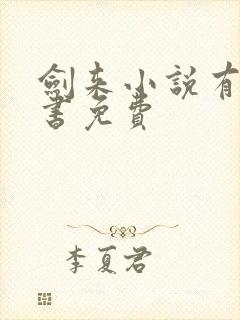 劍来小說有
書免費
李夏君